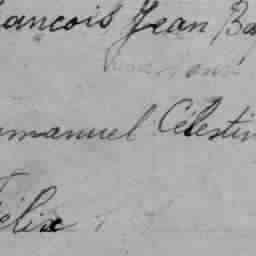 ancois Jean Ba
mmanuel Célestin
élix